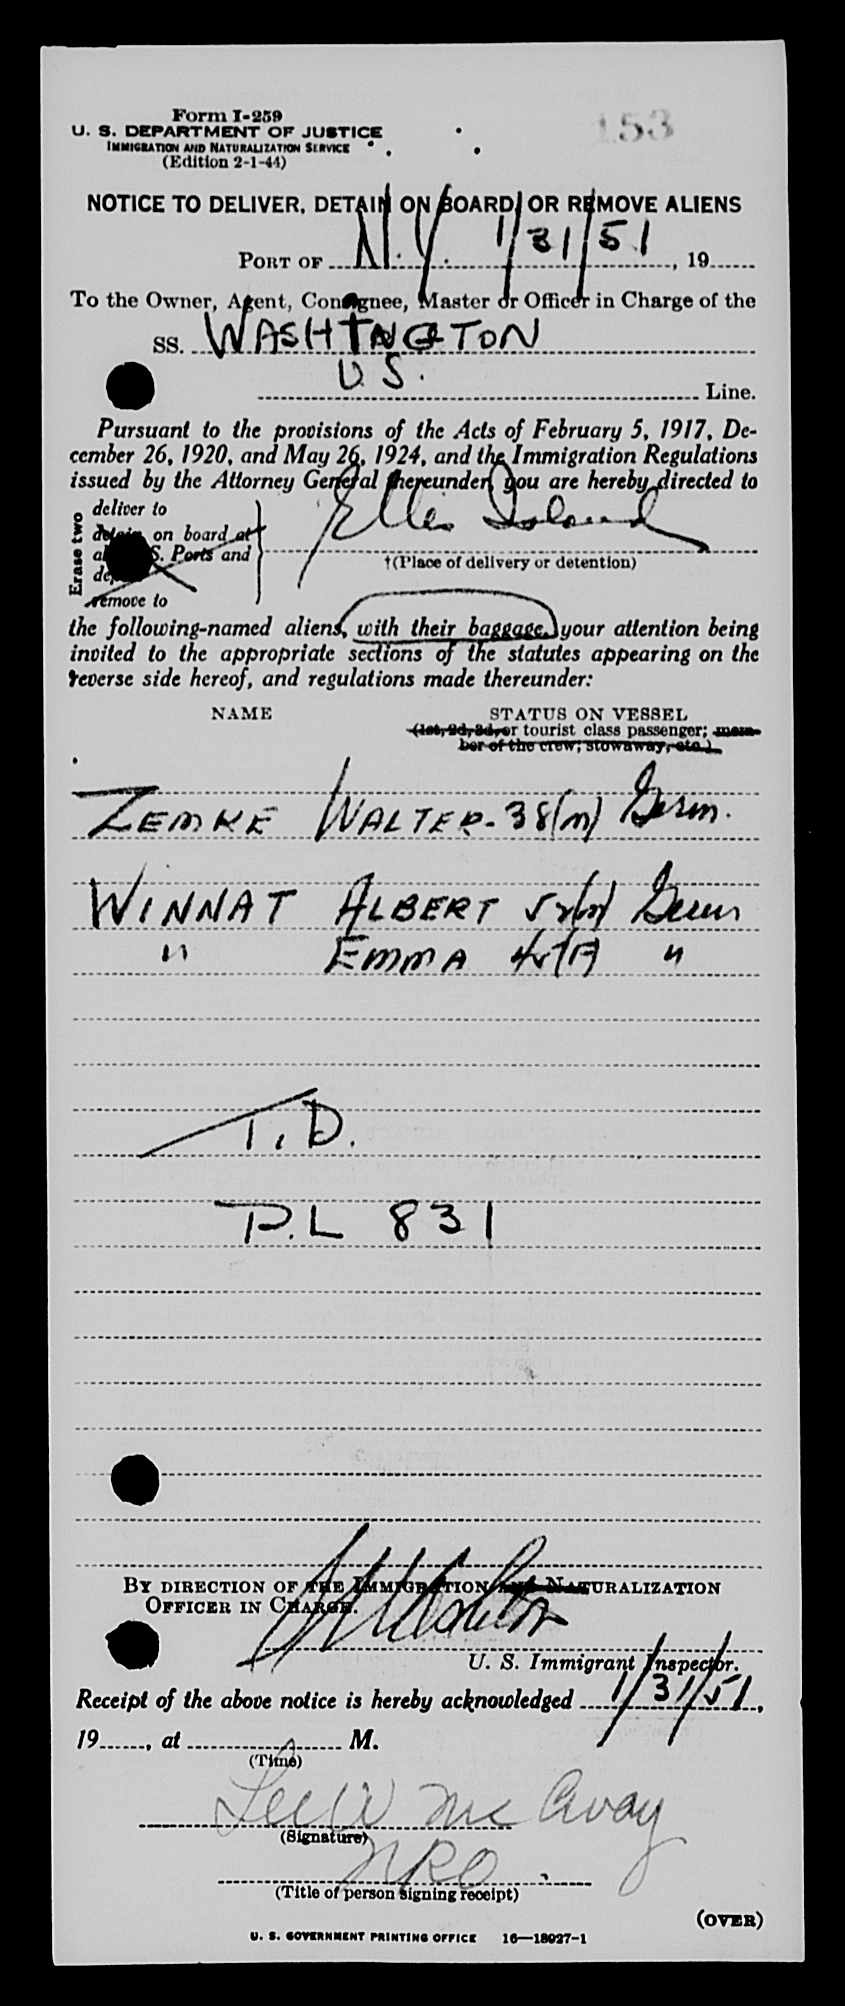 Form I-259
U. S. DEPARTMENT OF JUSTICE
IMMIGRATION AND NATURALIZATION SERVICE
(Edition 2-1-44)
153
NOTICE TO DELIVER, DETAIN ON BOARD, OR REMOVE ALIENS
PORT OF N.Y. 1/31/51, 19
To the Owner, Agent, Consignee, Master or Officer in Charge of the
SS. WASHINGTON
U.S. Line.
Pursuant to the provisions of the Acts of February 5, 1917, De-
cember 26, 1920, and May 26, 1924, and the Immigration Regulations
issued by the Attorney General thereunder, you are hereby directed to
Erase two
deliver to
detain on board at
S. Ports and
remove to
Ellis Island
†(Place of delivery or detention)
the following-named aliens, with their baggage, your attention being
invited to the appropriate sections of the statutes appearing on the
reverse side hereof, and regulations made thereunder:
NAME STATUS ON VESSEL
(1st, 2d, 3d, or tourist class passenger; mem-
ber of the crew; stowaway, etc.)
ZEMKE WALTER - 38(m) Germ.
WINNAT ALBERT Germ
" EMMA "
T.D.
P.L 831
BY DIRECTION OF THE IMMIGRATION AND NATURALIZATION
OFFICER IN CHARGE.
U. S. Immigrant Inspector.
Receipt of the above notice is hereby acknowledged 1/31/51,
19, at M.
(Time)
Lee W McAvoy
(Signature)
(Title of person signing receipt)
(OVER)
U. S. GOVERNMENT PRINTING OFFICE 16—18927-1